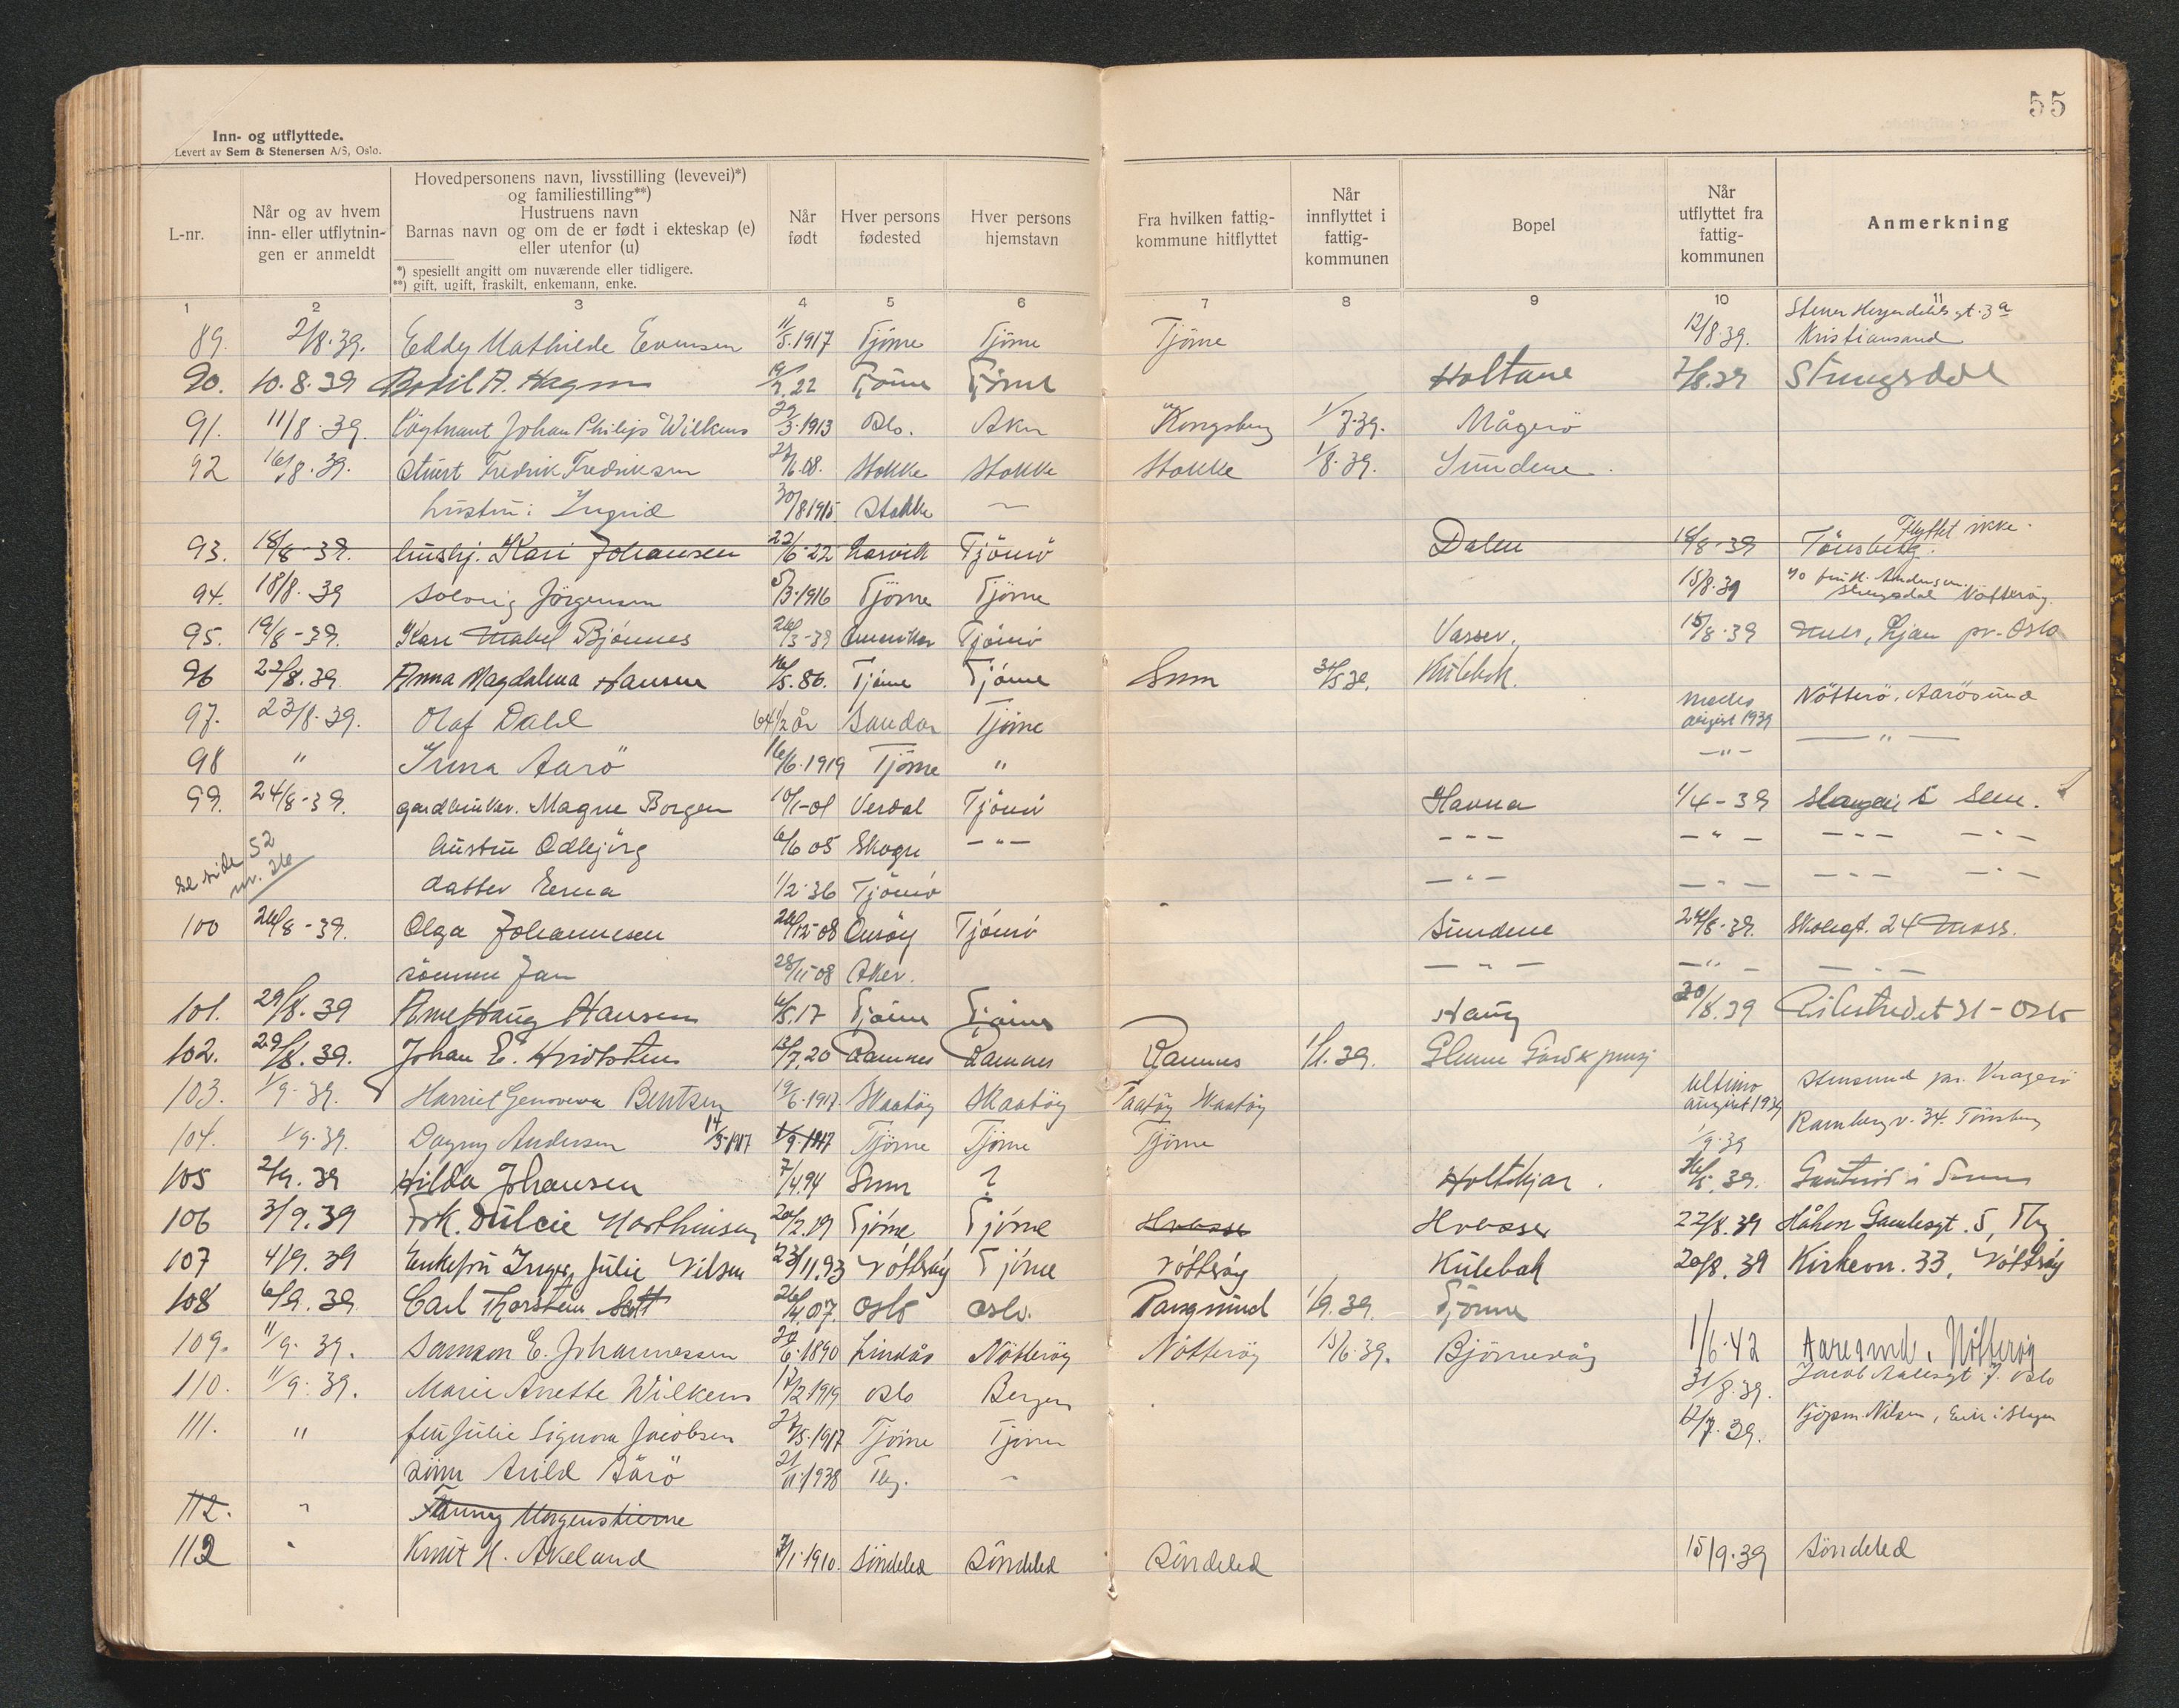 55
Inn- og utflyttede.
Levert av Sem & Stenersen A/S, Oslo.
L-nr. | Når og av hvem inn- eller utflytningen er anmeldt | Hovedpersonens navn, livsstilling (levevei)*) og familiestilling**) Hustruens navn Barnas navn og om de er født i ekteskap (e) eller utenfor (u) *) spesiellt angitt om nuværende eller tidligere. **) gift, ugift, fraskilt, enkemann, enke. | Når født | Hver persons fødested | Hver persons hjemstavn | Fra hvilken fattigkommune hitflyttet | Når innflyttet i fattigkommunen | Bopel | Når utflyttet fra fattigkommunen | Anmerkning
1 2 3 4 5 6 7 8 9 10 11
89. 2/8.39. Eddy Mathilde Evensen 11/5.1917 Tjöme Tjöme Tjöme 12/8.39. gt. 3a Kristiansand
90. 10.8.39 Bodil A. Hagen 22 Tjöme Tjöme Holtane 7/8.39
91. 11/8.39. Löytnant Johan Philip Wilkens 29/3.1913 Oslo. Aker Kongsberg 1/7.39. Mågerö
92 16/8.39. Fredrik Fredriksen 08. Stokke Stokke Stokke 1/8.39. Sundene.
hustru: Ingrid 30/8 1915 Stokke
93. 18/8-39. hushj. Kari Johansen 22/6-22 Narvik Tjömö Dalen 18/8-39 Tönsberg. Flyttet ikke.
94. 18/8.39 Solveig Jörgensen 5/3.1916 Tjöme Tjöme 15/8.39 Andersen. Nötteröy.
95. 19/8-39. Kari Mabel Bjönnes 3-39 Amerika Tjömö Vasser. 15/8.39 Ljan pr. Oslo
96 22/8.39. Anna Magdalena Hansen 16/5.86. Tjöme Tjöme Sem 31/5 39. Külebak.
97. 23/8.39. Olaf Dahl 64 1/2 år Sandar Tjöme medio august 1939 Nötterö, Aarösund
98 " Irma Aarö 16/6.1919 Tjöme " —"— —"—
99. 24/8-39. Magne Borgen 10/1-01 Verdal Tjömö Havna 1/4-39 i Sem.
hustru Odbjörg 6/6 05 Skogn —"— —"— —"— —"— —"—
se side 52 nr. 26
datter Erna 1/2-36 Tjömö —"— —"— —"— —"—
100 26/8-39. Olga Johannesen 08 Onsöy Tjömö Sundene 24/8.39. Skolegt. 24 Moss.
sönnen Jan 28/11-08 Aker. —"— —"— —"—
101. 29/8.39 Arne Haug Hansen 6/5.17 Tjöme Tjöme Haug 30/8.39 Pilestredet 31 - Oslo
102. 29/8.39. Johan E. 13/7.20 Ramnes Ramnes Ramnes 1/1.39.
103. 1/9.39. Harriet Genoveva Bentsen 19/6.1917 Skaatöy Skaatöy Taatöy Skaatöy ultimo august 1939 Stensund pr. Kragerö
104. 1/9.39. Dagny Andersen 14/5-1917 1/9.1917 Tjöme Tjöme Tjöme 1/9.39 Rambergv. 34. Tönsberg
105 2/9.39 Hilda Johansen 7/4.94 Sem ? Holtekjær. 39. i Sem
106 3/9.39 Frk. Dulcie Marthinsen 20/2.19 Tjöme Tjöme Hvasser Hvasser 22/8.39 Håkon Gamlesgt. 5, Tbg
107 4/9.39 Enkefru Inger Julie Nilsen 23/11.93 Nötteröy Tjöme Nötteröy Külebak 20/8.39 Kirkevn. 33, Nötteröy
108 6/9.39. Carl Thorstein 07. Oslo Oslo. Langesund 1/9.39. Tjöme
109. 11/9.39. Samson E. Johannessen 6.1890 Lindås Nötteröy Nötteröy 15/6.39. Björnevåg 1/6.42 Aaresund. Nötteröy
110. 11/9.39. Marie Anette Wilkens 17/2.1919 Oslo Bergen 31/8.39. Jacob Aallsgt 7. Oslo
111. " fru Julie Signora Jacobsen 27/5.1917 Tjöme Tjöme 12/7.39. Kjöpm. Nilsen,
sönn Arild Aarö 21/11.1938 Tbg. "
112. " Fanny Morgenstierne
112 " Knut H. Akeland 7/1.1910. Söndeled Söndeled Söndeled 15/9.39 Söndeled